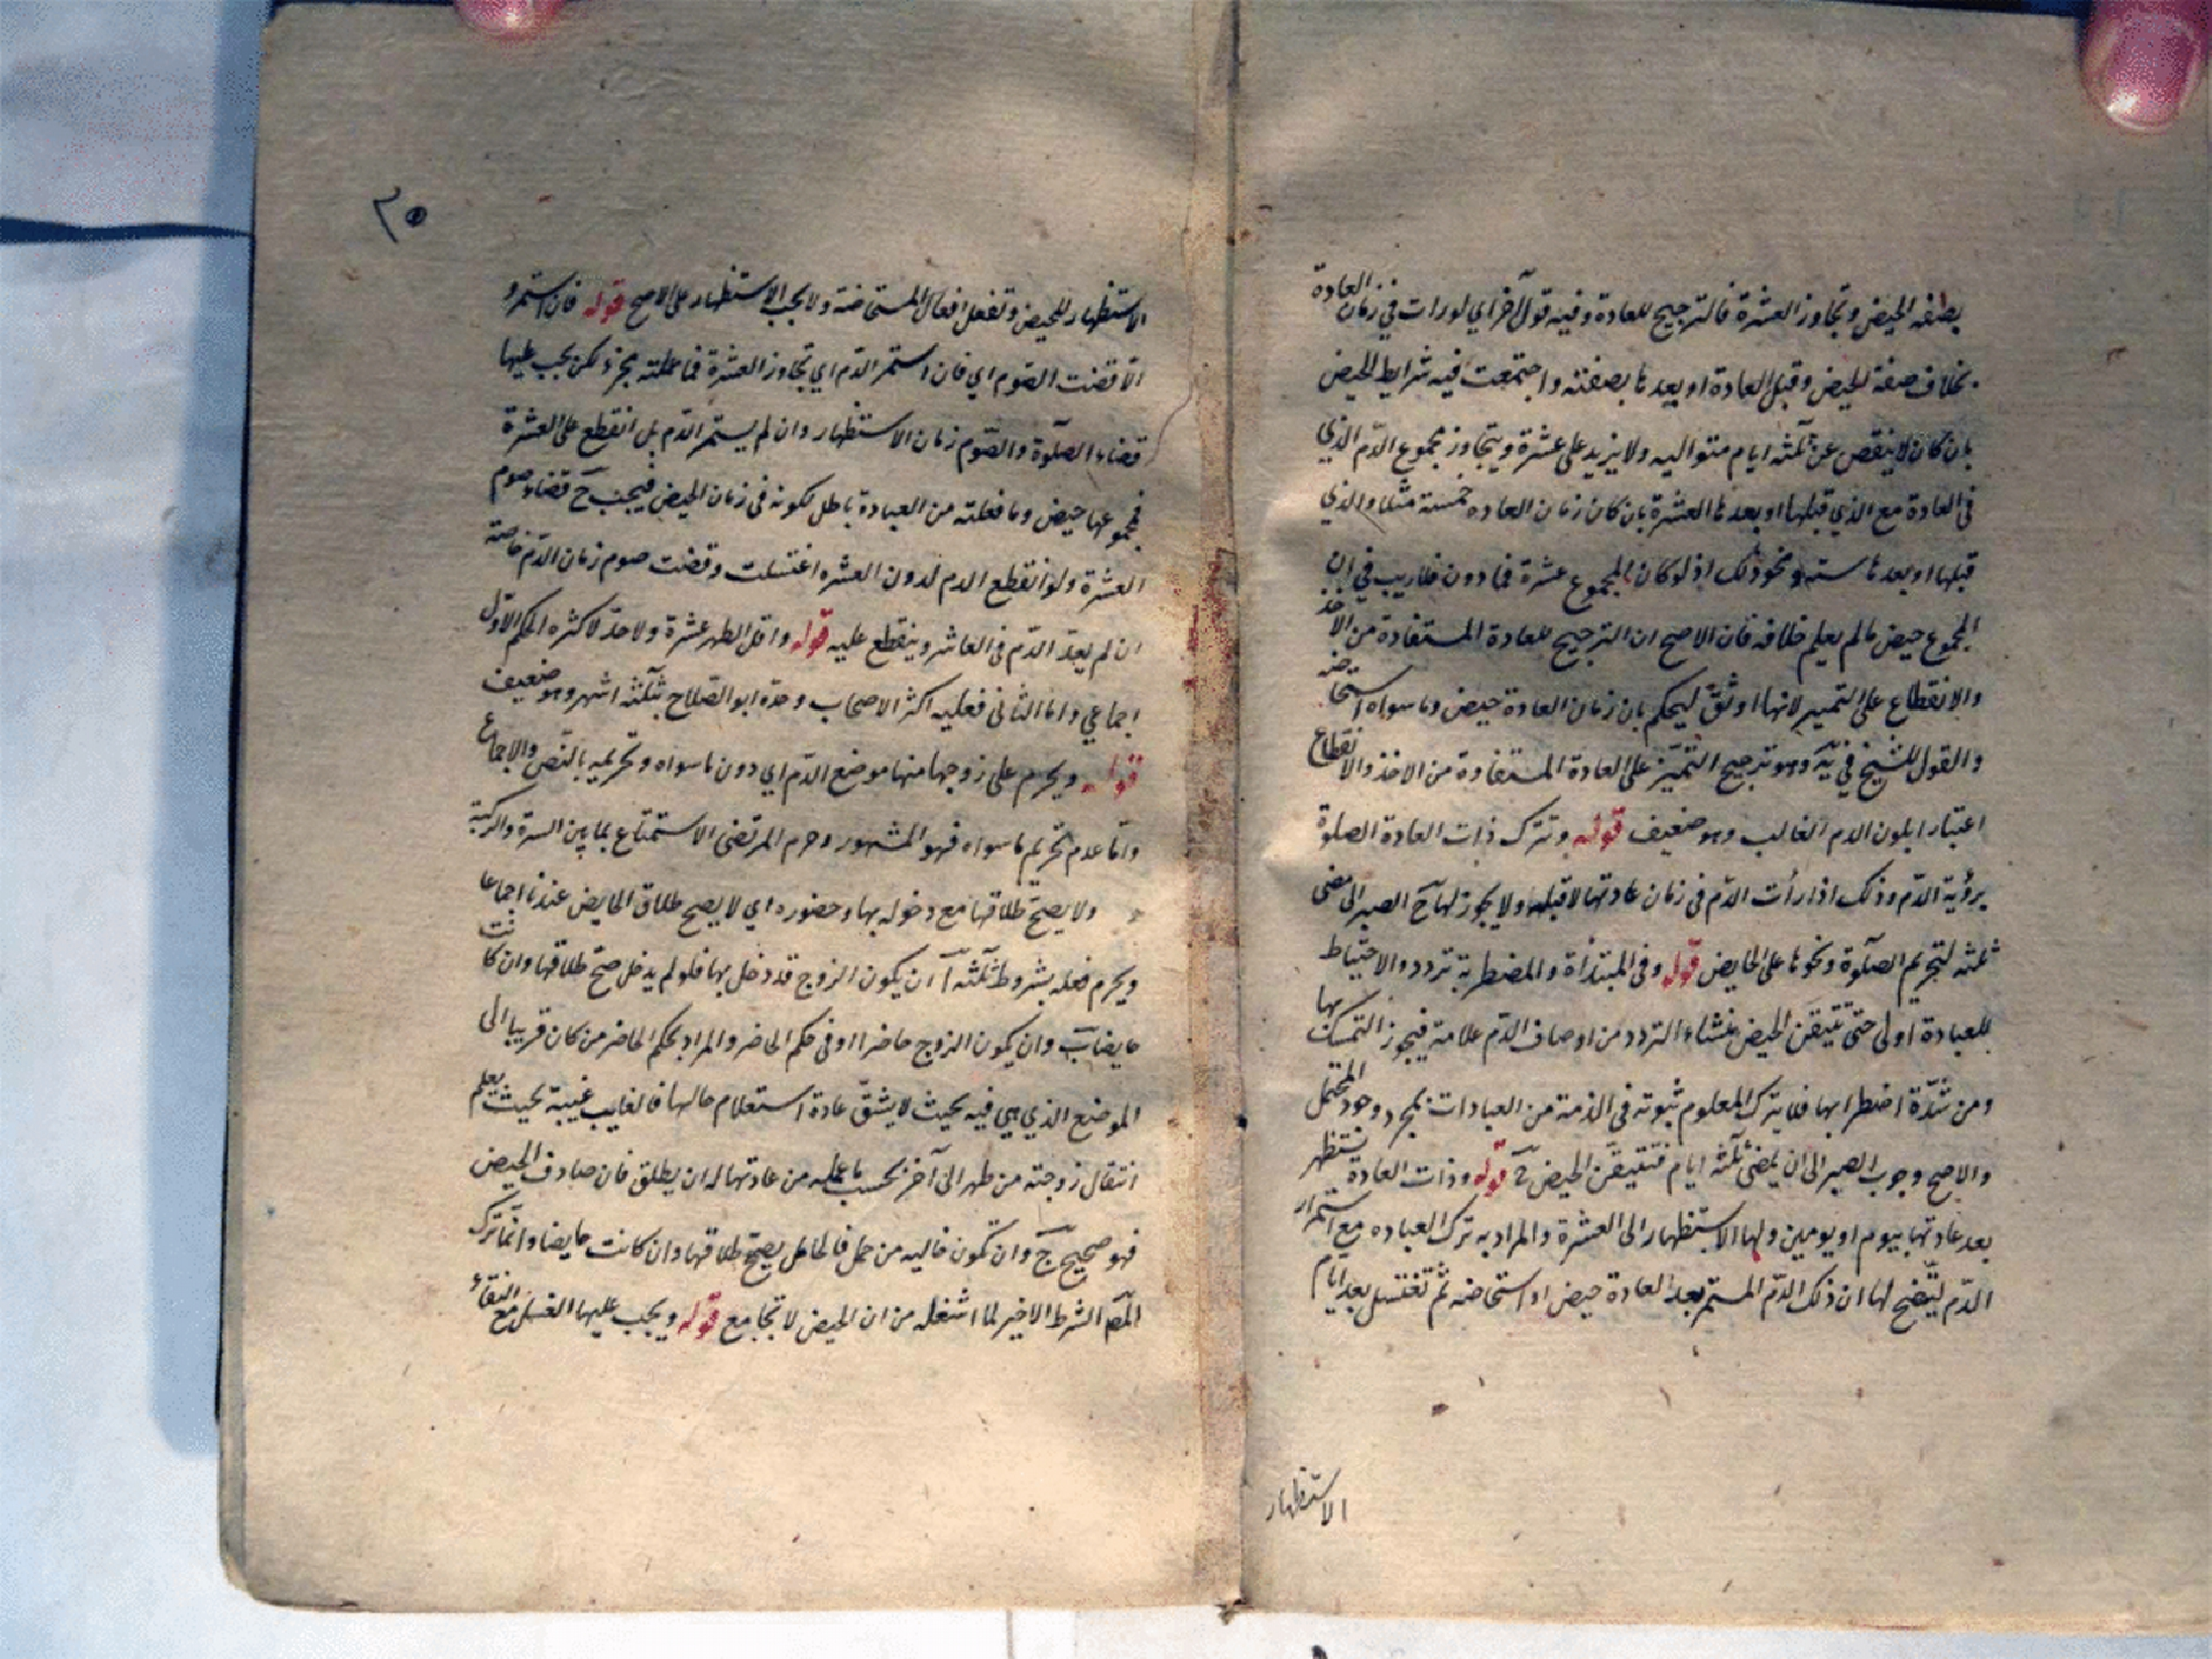 بصفة الحيض وتجاوز العشرة فالترجيح للعادة وفيه قول آخر اي لو رات في زمان العادة
بخلاف صفة الحيض وقبل العادة او بعدها بصفته واجتمعت فيه شرايط الحيض
بان كان لا ينقص عن ثلثه ايام متواليه ولا يزيد على عشرة ويتجاوز مجموع الدّم الذي
في العادة مع الذي قبلها او بعدها العشرة بان كان زمان العاده خمسة مثلا والذي
قبلها او بعدها سته ونحو ذلك اذ لو كان المجموع عشرة فما دون فلا ريب في ان
المجموع حيض ما لم يعلم خلافه فان الاصح ان الترجيح للعادة المستفادة من الاخذ
والانقطاع على التميز لانها اوثق ليحكم بان زمان العادة حيض وما سواه استحاضه
والقول للشيخ في يَه وهو ترجيح التميّز على العادة المستفادة من الاخذ والانقطاع
اعتبارا بلون الدم الغالب وهو ضعيف قوله وتترك ذات العادة الصلوة
برؤية الدّم وذلك اذا رأت الدّم في زمان عادتها لا قبلها ولا يجوز لها حَ الصبر الى مضى
ثلثه لتحريم الصلوة ونحوها على الحايض قوله وفي المبتدأة والمضطربة تردد والاحتياط
للعبادة اولى حتى تتيقن الحيض منشاء التردد من اوصاف الدّم علامة فيجوز التمسك بها
ومن شدّة اضطرابها فلا يترك المعلوم ثبوته في الذمة من العبادات بمجرد وجود المحتمل
والاصح وجوب الصبر الى ان يمضى ثلثه ايام فتتيقن الحيض حَ قوله وذات العادة تستظهر
بعد عادتها بيوم او يومين ولها الاستظهار الى العشرة والمراد به ترك العباده مع استمرار
الدّم ليتّضح لها ان ذلك الدّم المستمر بعد العادة حيض او استحاضه ثم تغتسل بعد ايام
الاستظهار
٢٥
الاستظهار للحيض وتفعل افعال المستحاضة ولا يجب الاستظهار على الاصح قوله فان استمر و
الا قضت الصّوم اي فان استمر الدّم اي تجاوز العشرة فما عملته مجزء لكن يجب عليها
قضاء الصلوة والصّوم زمان الاستظهار وان لم يستمر الدّم بل انقطع على العشرة
فمجموعها حيض وما فعلته من العبادة باطل لكونه في زمان الحيض فيجب حَ قضاء صوم
العشرة ولو انقطع الدم لدون العشره اغتسلت وقضت صوم زمان الدّم خاصة
ان لم يعد الدّم في العاشر وينقطع عليه قوله واقل الطهر عشرة ولا حدّ لاكثره الحكم الاول
اجماعي واما الثاني فعليه اكثر الاصحاب وحدّه ابو الصّلاح بثلثه اشهر وهو ضعيف
قوله ويحرم على زوجها منها موضع الدّم اي دون ما سواه وتحريمه بالنّص والاجماع
وامّا عدم تحريم ما سواه فهو المشهور وحرم المرتضى الاستمتاع بما بين السرة والركبة
ولا يصحّ طلاقها مع دخوله بها وحضوره اي لا يصح طلاق الحايض عندنا اجماعا
ويحرم فعله بشروط ثلثه آ ان يكون الزوج قد دخل بها فلو لم يدخل صحّ طلاقها وان كانت
حايضا بَ وان يكون الزوج حاضرا او في حكم الحاضر والمراد بحكم الحاضر من كان قريبا الى
الموضع الذي هي فيه بحيث لا يشقّ عادة استعلام حالها فالغايب غيبة بحيث يعلم
انتقال زوجته من طهر الى آخر بحسب ما علمه من عادتها له ان يطلق فان صادف الحيض
فهو صحيح جَ وان تكون خاليه من حمل فالحامل يصحّ طلاقها وان كانت حايضا وانّما ترك
المصّ الشرط الاخير لما اشغله من ان الحيض لا تجامع قوله ويجب عليها الغسل مع النقاء